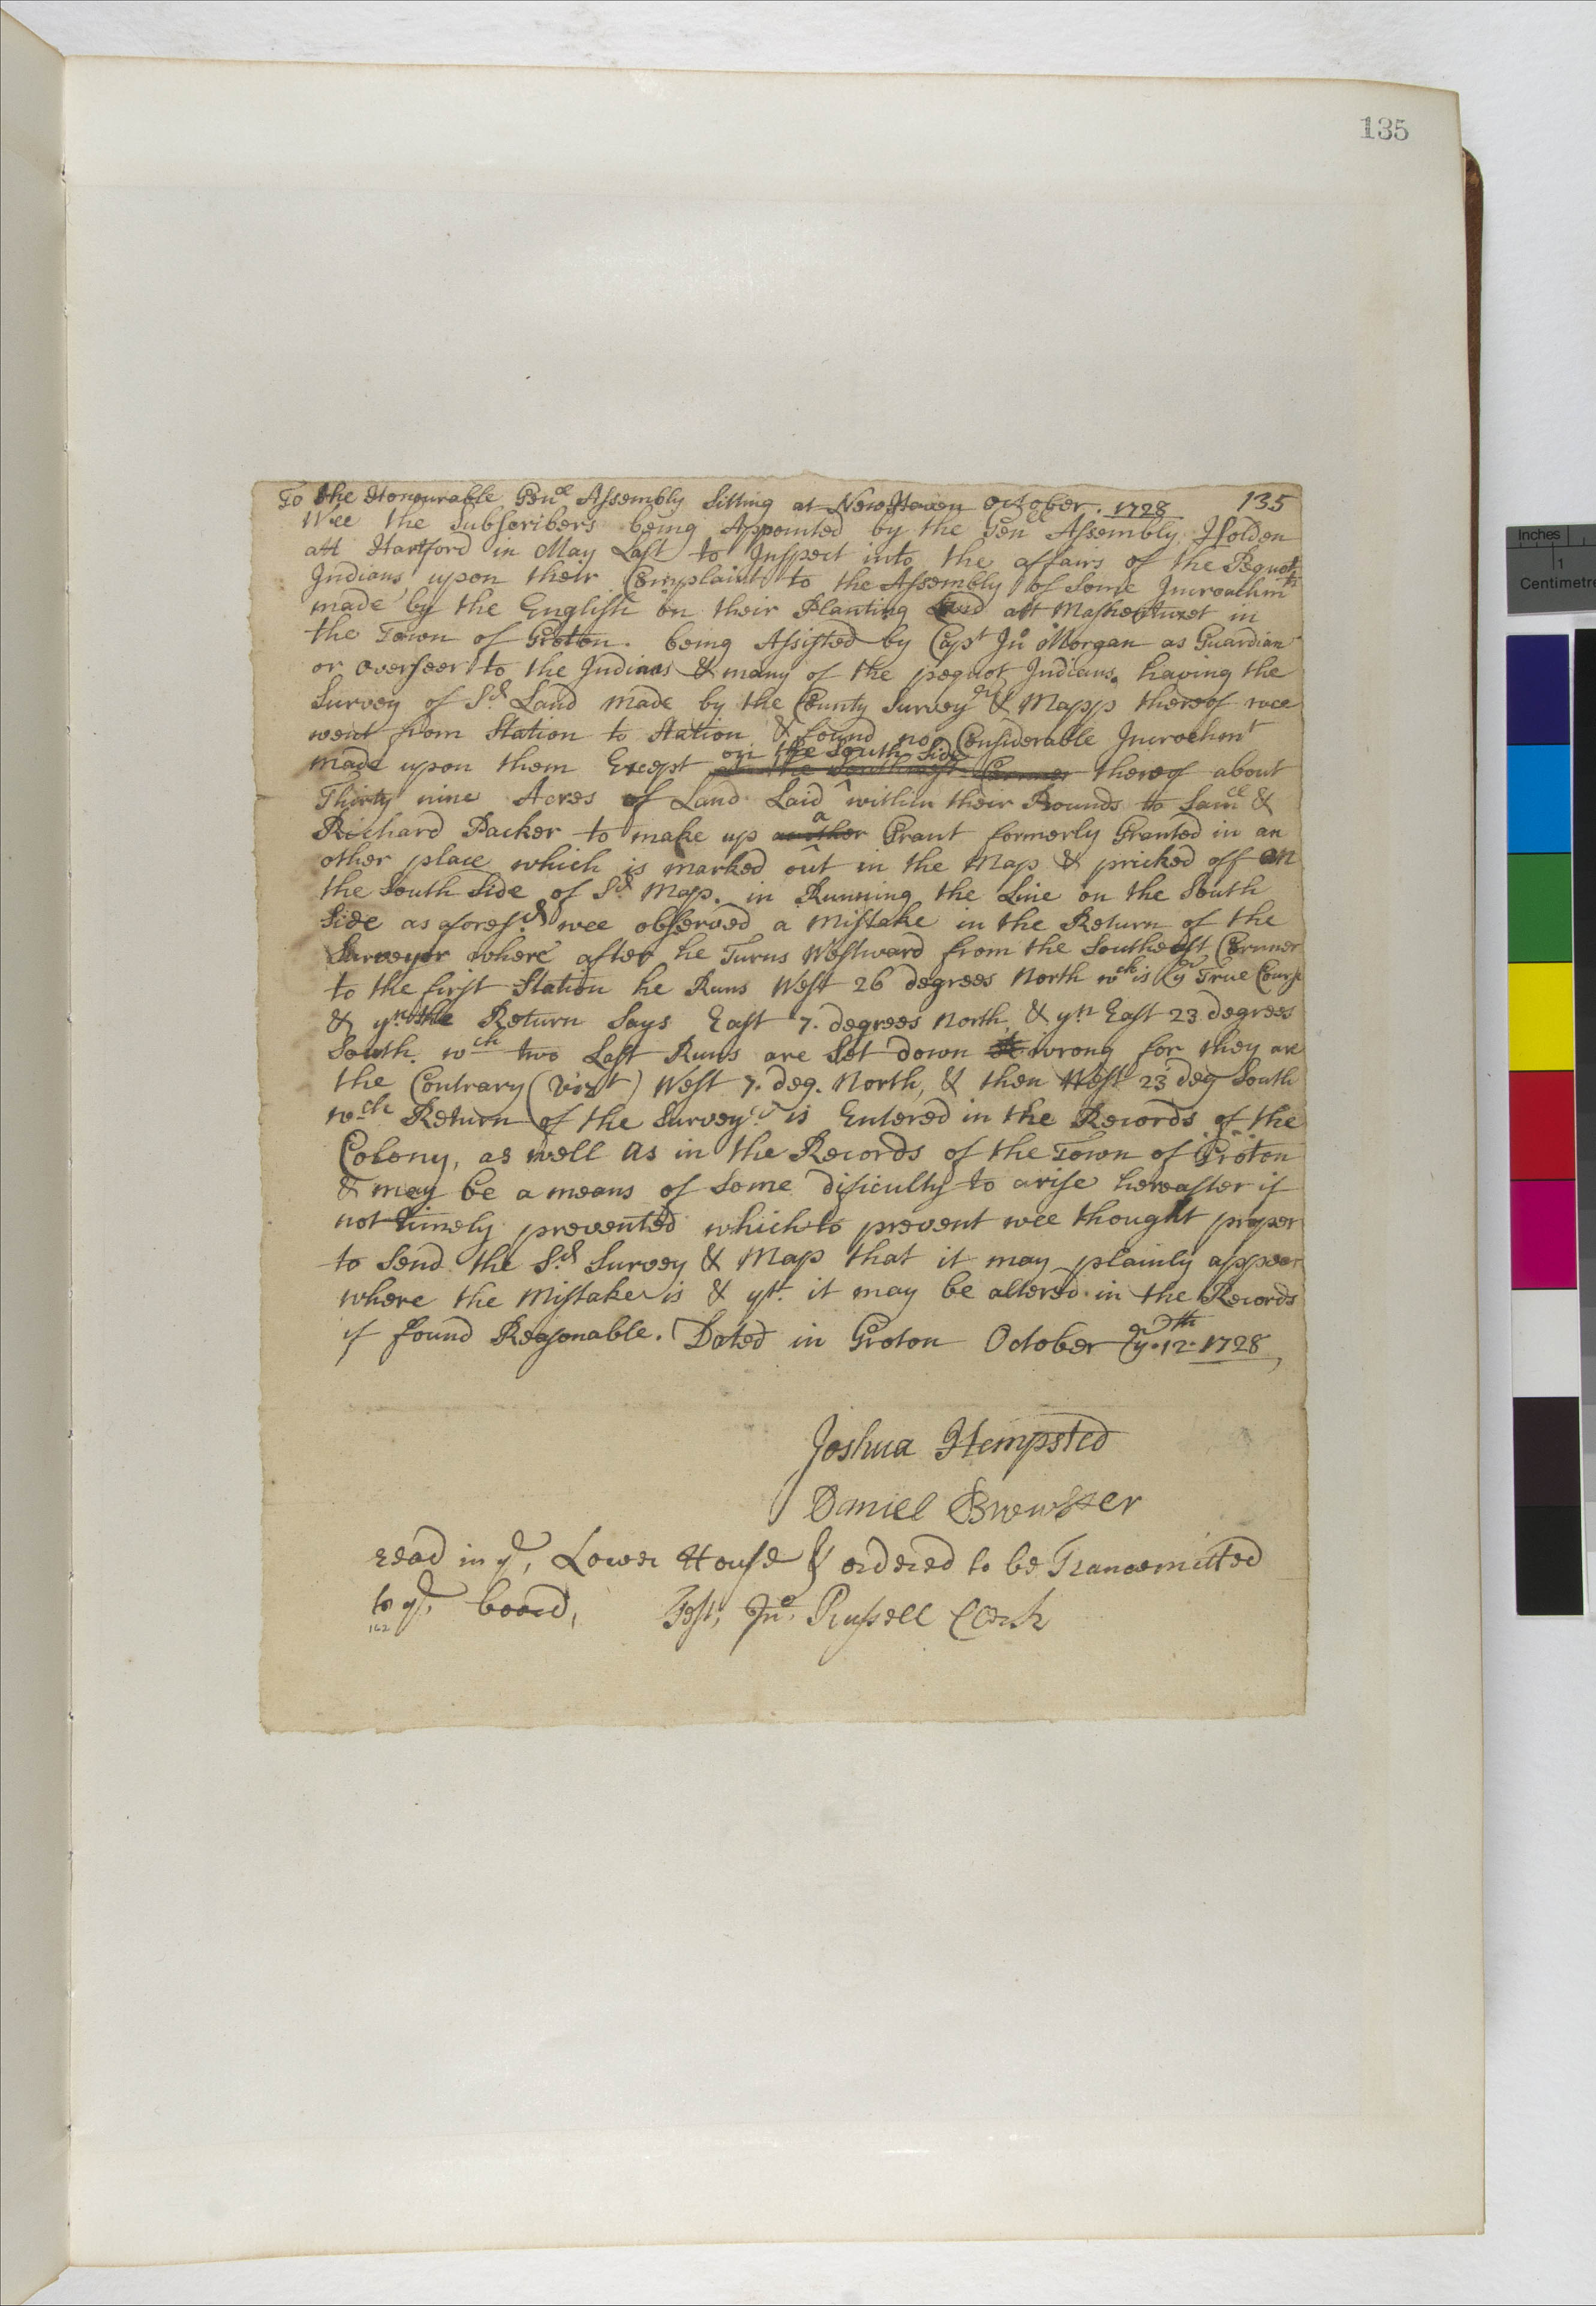 135
To the Honourable Genll Assembly Sitting at New Haven October. 1728 135
Wee the Subscribers being Appointed by the Genll Assembly Holden
att Hartford in May Last to Inspect into the affairs of the Pequot
Indians upon their Complaint to the Assembly of Some Incroachmts
made by the English on their Planting Land att Mashentuxet in
the Town of Groton. being Assisted by Capt Jno Morgan as Guardian
or Overseer to the Indians & many of the pequot Indians. having the
Survey of Sd Land made by the County Surveyr & Mapp thereof wee
went from Station to Station & found noe Considerable Incrochmt
on the South Side
made upon them Except in the Southwest Corner thereof about
Thirty nine Acres of Land Laid ^ within their Bounds to Samll &
a
Richard Packer to make up another Grant formerly Granted in an
other place which is marked out in the Map & pricked off on
the South Side of Sd Map. in Running the Line on the South
Side as aforesd wee observed a Mistake in the Return of the
Surveyor where after he Turns Westward from the Southeast Corner
to the first Station he Runs West 26 degrees North wch is ye True Course
& yn the Return Says East 7. degrees North, & yn East 23 degrees
South. wch two Last Runs are Set down wrong for they are
the Contrary (vizt) West 7. deg. North, & then West 23 deg South
wch Return of the Surveyr is Entered in the Records of the
Colony, as well as in the Records of the Town of Groton
& may be a means of Some dificulty to arise hereafter if
not timely prevented which to prevent wee thought proper
to Send the Sd Survey & Map that it may plainly appear
where the Mistake is & yt it may be altered in the Records
if found Reasonable. Dated in Groton October ye 12th 1728
Joshua Hempsted
Daniel Brewster
read in ye, Lower House & ordered to be Transmitted
to ye board, Test, Jno, Russell Clerk
162
Inches
1
Centimetre